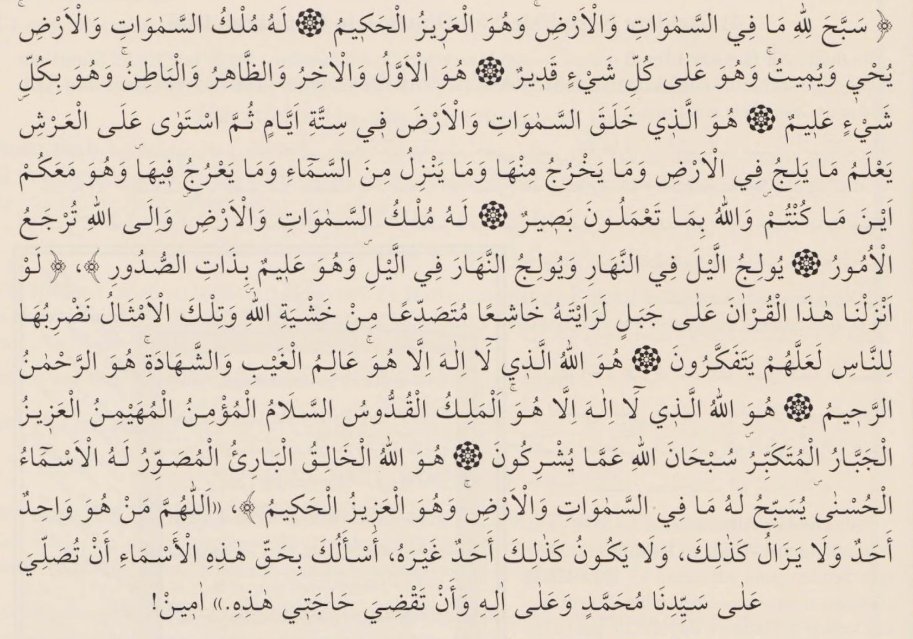 ﴿ سَبَّحَ لِلّٰهِ مَا فِي السَّمٰوَاتِ وَالْاَرْضِۚ وَهُوَ الْعَزِيزُ الْحَكِيمُ ۞ لَهُ مُلْكُ السَّمٰوَاتِ وَالْاَرْضِۚ
يُحْيِ وَيُمِيتُۚ وَهُوَ عَلٰى كُلِّ شَيْءٍ قَدِيرٌ ۞ هُوَ الْاَوَّلُ وَالْاٰخِرُ وَالظَّاهِرُ وَالْبَاطِنُۚ وَهُوَ بِكُلِّ
شَيْءٍ عَلِيمٌ ۞ هُوَ الَّذِي خَلَقَ السَّمٰوَاتِ وَالْاَرْضَ فِي سِتَّةِ اَيَّامٍ ثُمَّ اسْتَوٰى عَلَى الْعَرْشِۜ
يَعْلَمُ مَا يَلِجُ فِي الْاَرْضِ وَمَا يَخْرُجُ مِنْهَا وَمَا يَنْزِلُ مِنَ السَّمَٓاءِ وَمَا يَعْرُجُ فِيهَاۜ وَهُوَ مَعَكُمْ
اَيْنَ مَا كُنْتُمْۜ وَاللّٰهُ بِمَا تَعْمَلُونَ بَصِيرٌ ۞ لَهُ مُلْكُ السَّمٰوَاتِ وَالْاَرْضِۜ وَاِلَى اللّٰهِ تُرْجَعُ
الْاُمُورُ ۞ يُولِجُ الَّيْلَ فِي النَّهَارِ وَيُولِجُ النَّهَارَ فِي الَّيْلِۜ وَهُوَ عَلِيمٌ بِذَاتِ الصُّدُورِ ﴾، ﴿ لَوْ
اَنْزَلْنَا هٰذَا الْقُرْاٰنَ عَلٰى جَبَلٍ لَرَاَيْتَهُ خَاشِعًا مُتَصَدِّعًا مِنْ خَشْيَةِ اللّٰهِۜ وَتِلْكَ الْاَمْثَالُ نَضْرِبُهَا
لِلنَّاسِ لَعَلَّهُمْ يَتَفَكَّرُونَ ۞ هُوَ اللّٰهُ الَّذِي لَٓا اِلٰهَ اِلَّا هُوَۚ عَالِمُ الْغَيْبِ وَالشَّهَادَةِۚ هُوَ الرَّحْمٰنُ
الرَّحِيمُ ۞ هُوَ اللّٰهُ الَّذِي لَٓا اِلٰهَ اِلَّا هُوَۚ اَلْمَلِكُ الْقُدُّوسُ السَّلَامُ الْمُؤْمِنُ الْمُهَيْمِنُ الْعَزِيزُ
الْجَبَّارُ الْمُتَكَبِّرُۜ سُبْحَانَ اللّٰهِ عَمَّا يُشْرِكُونَ ۞ هُوَ اللّٰهُ الْخَالِقُ الْبَارِئُ الْمُصَوِّرُ لَهُ الْاَسْمَٓاءُ
الْحُسْنٰىۜ يُسَبِّحُ لَهُ مَا فِي السَّمٰوَاتِ وَالْاَرْضِۚ وَهُوَ الْعَزِيزُ الْحَكِيمُ ﴾، «اَللّٰهُمَّ مَنْ هُوَ وَاحِدٌ
أَحَدٌ وَلَا يَزَالُ كَذٰلِكَ، وَلَا يَكُونُ كَذٰلِكَ أَحَدٌ غَيْرَهُ، أَسْأَلُكَ بِحَقِّ هٰذِهِ الْأَسْمَاءِ أَنْ تُصَلِّيَ
عَلٰى سَيِّدِنَا مُحَمَّدٍ وَعَلٰى اٰلِهِ وَأَنْ تَقْضِيَ حَاجَتِي هٰذِهِ.» اٰمِينْ!